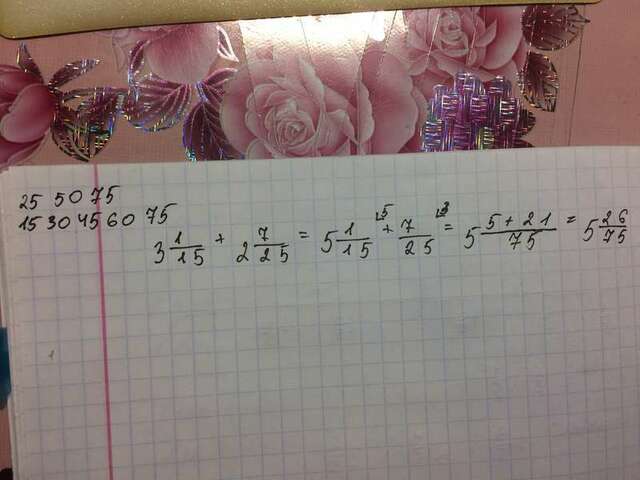 25 50 75
15 30 45 60 75
3 1/15 + 2 7/25 = 5 1/15 ⌊5 + 7/25 ⌊3 = 5 5+21/75 = 5 26/75